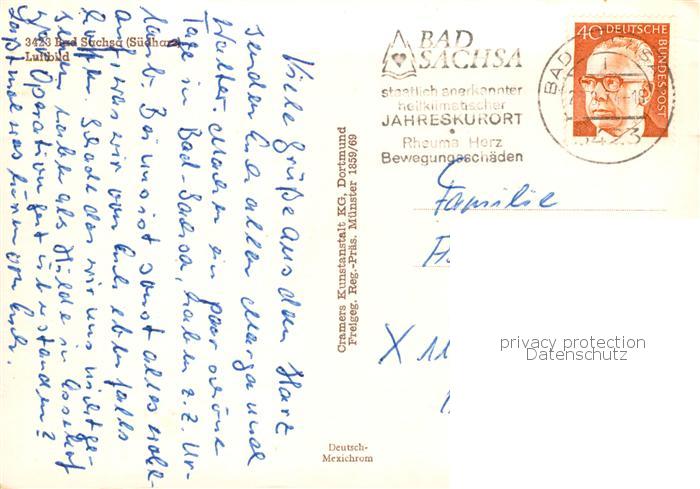 3423 Bad Sachsa (Südharz)
Luftbild
Viele Grüße aus dem Harz
senden Euch allen Marga und
Walter. Machen ein paar schöne
Tage in Bad-Sachsa, haben z. Z. Ur-
laub. Bei uns ist sonst alles wohl-
auf, was wir von Euch ebenfalls
hoffen. Schade das wir uns nicht ge-
sehen haben als Hilde in
war. Operation gut überstanden?
Laßt mal was hören von Euch.
Cramers Kunstanstalt KG, Dortmund
Freigeg. Reg.-Präs. Münster 1859/69
Deutsch-
Mexichrom
BAD
SACHSA
staatlich anerkannter
heilklimatischer
JAHRESKURORT
Rheuma Herz
Bewegungsschäden
40 DEUTSCHE
BUNDESPOST
BAD
3423
Familie
X 11
privacy protection
Datenschutz